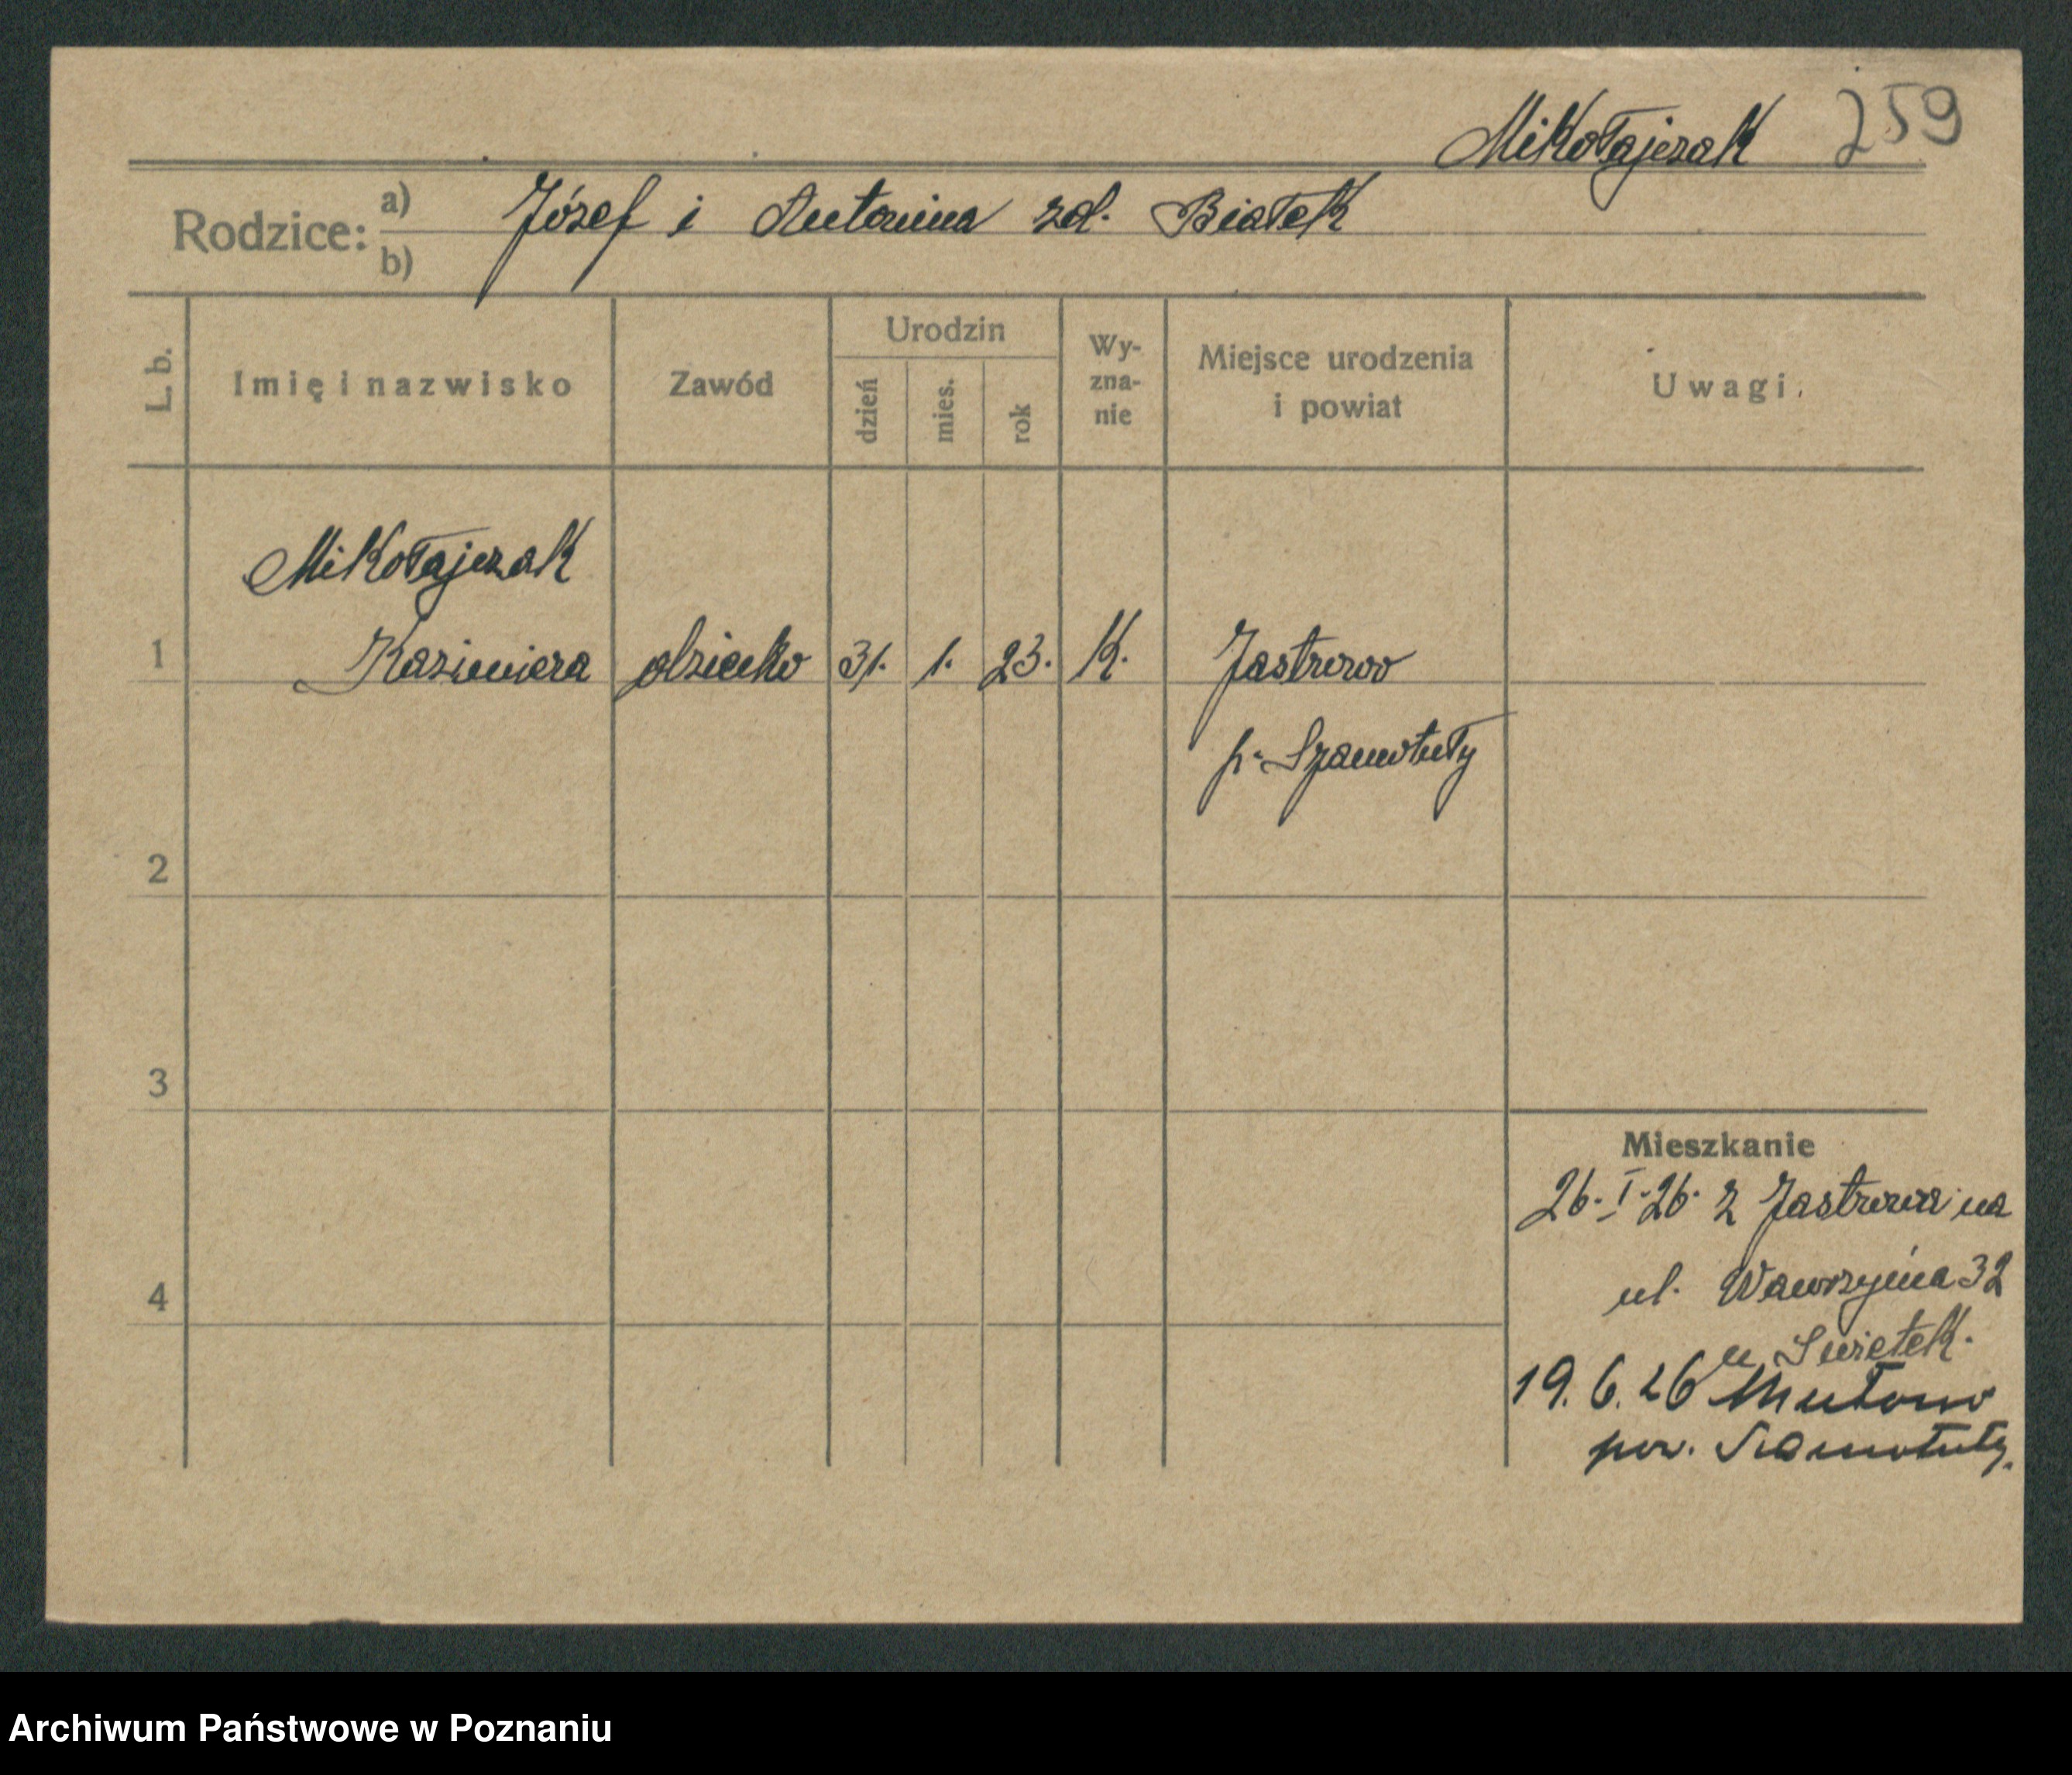 Mikołajczak 259
Rodzice: a) Józef i Antonina zd. Białek
b)
L. b. Imię i nazwisko Zawód Urodzin dzień mies. rok Wy-zna-nie Miejsce urodzenia i powiat Uwagi.
Mikołajczak
1 Kazimiera dziecko 31. 1. 23. K. Jastrowo
p. Szamotuły
2
3
Mieszkanie
26. I. 26. z Jastrowa na
4 ul. Wawrzyńa 32
u Swietek.
19. 6. 26 Mutowo
pow. Szamotuły.
Archiwum Państwowe w Poznaniu